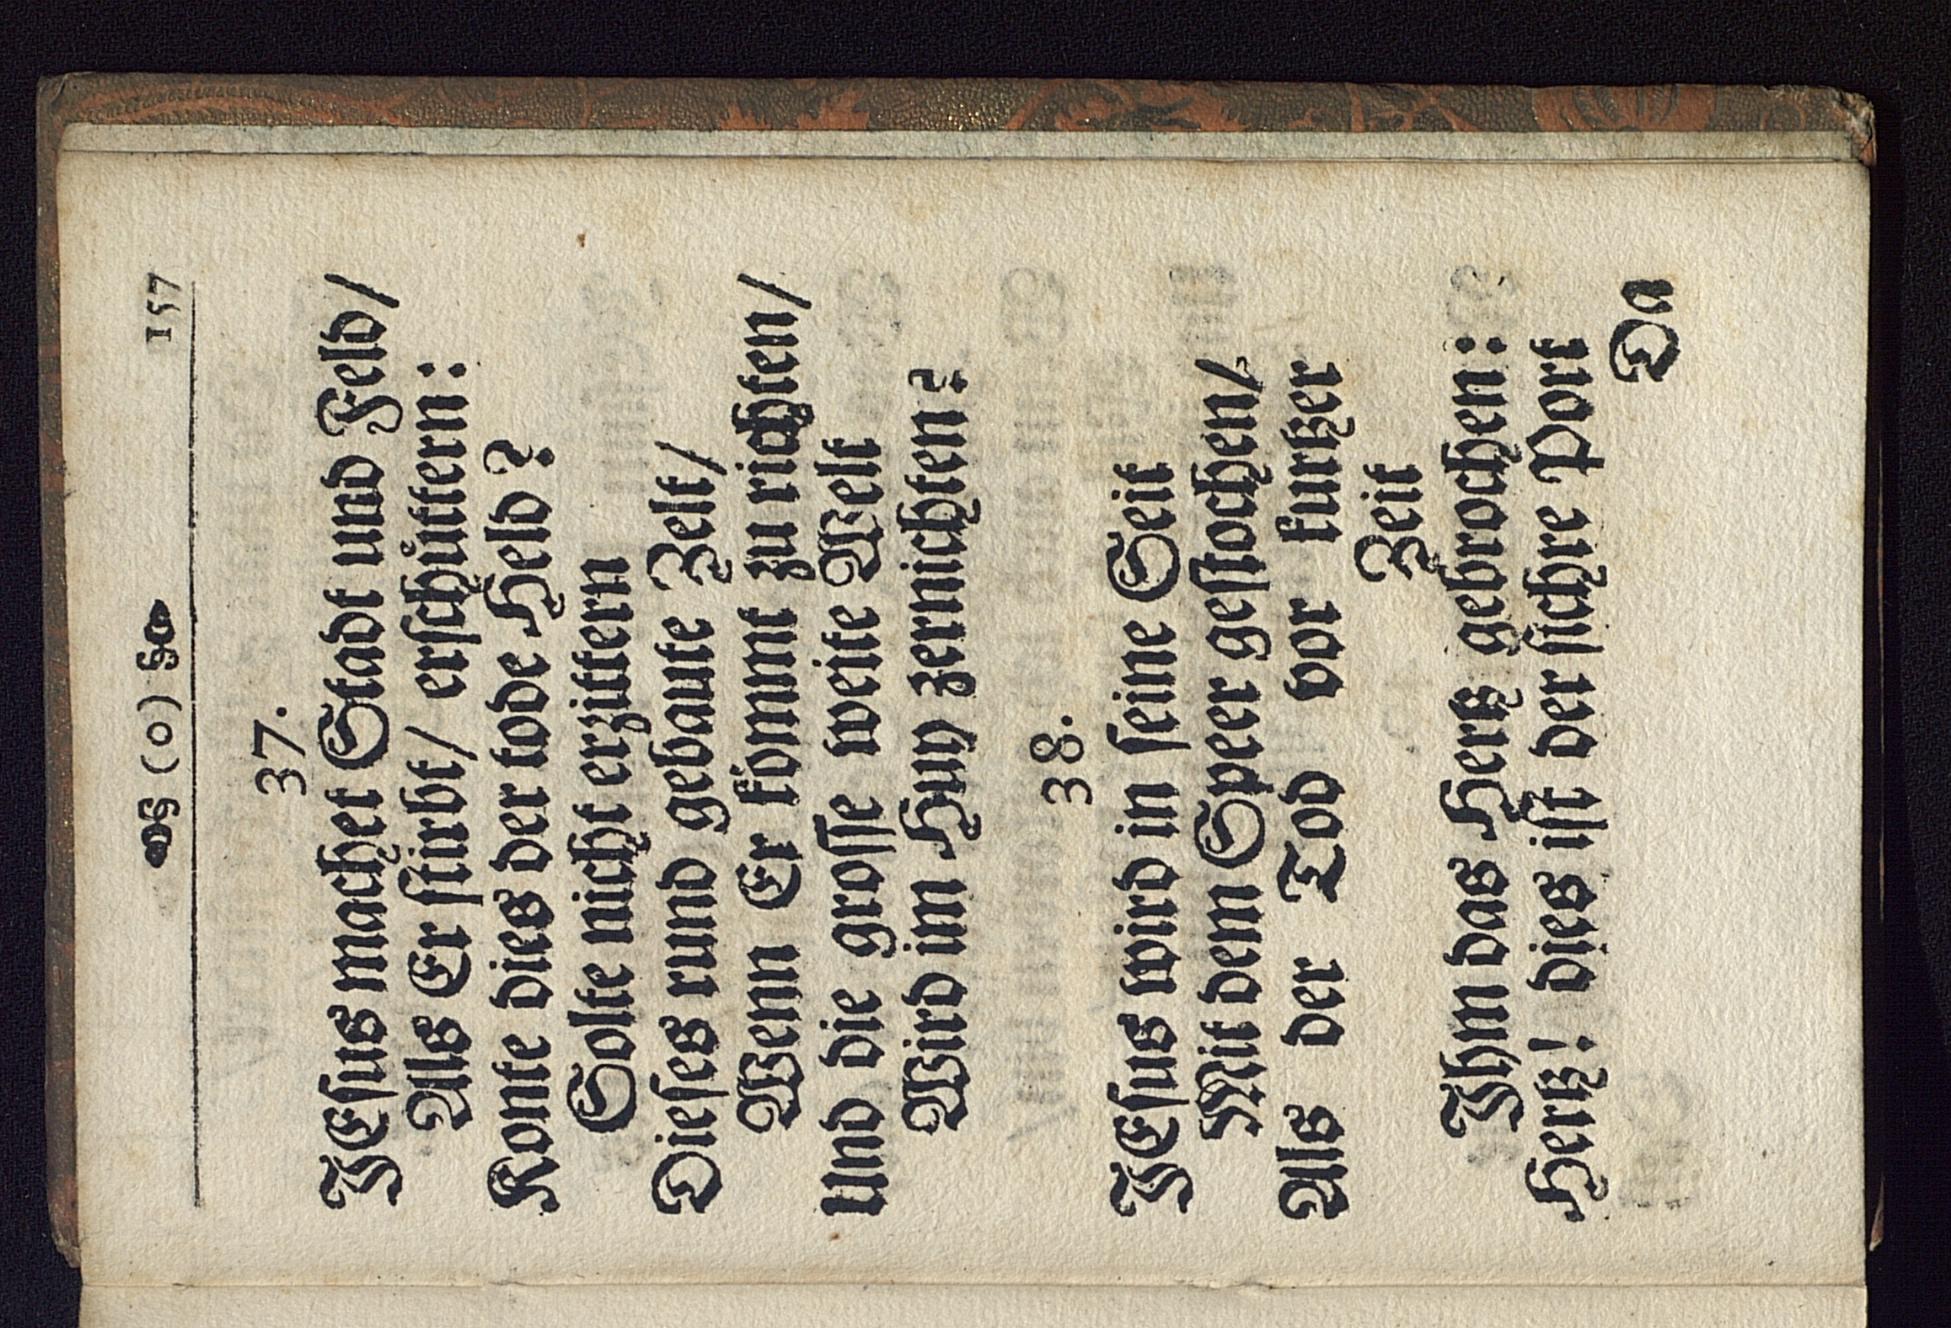 (o) 157
37.
JEsus machet Stadt und Feld/
Als Er stirbt/ erschüttern:
Konte dies der tode Held?
Solte nicht erzittern
Dieses rund gebaute Zelt/
Wenn Er kömmt zu richten/
Und die grosse weite Welt
Wird im Huy zernichten?
38.
JEsus wird in seine Seit
Mit dem Speer gestochen/
Als der Tod vor kurtzer
Zeit
Ihm das Hertz gebrochen:
Hertz! dies ist der sichre Port
Da